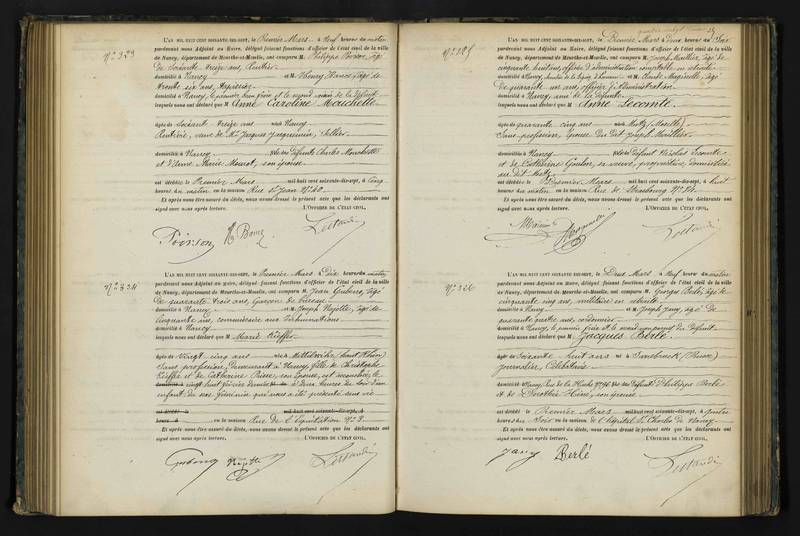 N° 323
L'AN MIL HUIT CENT SOIXANTE-DIX-SEPT, le Premier Mars à Neuf heures du matin
pardevant nous Adjoint au Maire, délégué faisant fonctions d'officier de l'état civil de la ville
de Nancy, département de Meurthe-et-Moselle, ont comparu M. Philippe Poirson, âgé
de Soixante treize ans, Rentier
domicilié à Nancy et M. Henry Bance, âgé de
trente six ans, Tapissier
domicilié à Nancy, le premier beau frère et le second voisin de la défunte
lesquels nous ont déclaré que M Anne Caroline Mouchette
âgée de Soixante treize ans née à Nancy
Rentière, veuve de M. Jacques Jacquemin, Sellier
domiciliée à Nancy fille des défunts Charles Mouchette
et d'Anne Marie son épouse
est décédée le Premier Mars mil huit cent soixante-dix-sept, à Cinq
heures du matin en sa maison Rue St Jean N° 40
Et après nous être assuré du décès, nous avons dressé le présent acte que les déclarants ont
signé avec nous après lecture. L'OFFICIER DE L'ÉTAT CIVIL,
Poirson H Bance
N° 324
L'AN MIL HUIT CENT SOIXANTE-DIX-SEPT, le Premier Mars à Dix heures du matin
pardevant nous Adjoint au Maire, délégué faisant fonctions d'officier de l'état civil de la ville
de Nancy, département de Meurthe-et-Moselle, ont comparu M. Jean âgé
de quarante trois ans, Garçon de bureau
domicilié à Nancy et M. Joseph âgé de
Cinquante ans, commissaire aux Inhumations
domicilié à Nancy
lesquels nous ont déclaré que M Marie Kieffer
âgée de Vingt cinq ans née à (haut Rhin)
Sans profession, demeurant à Nancy, fille de Christophe
Kieffer et de Catherine son épouse, est accouchée le
domicilié à vingt huit février dernier à deux heures du soir d'un
enfant du sexe féminin qui nous a été présenté sans vie
est décédé le mil huit cent soixante-dix-sept, à
heures du en sa maison Rue de l'Equitation N° 3
Et après nous être assuré du décès, nous avons dressé le présent acte que les déclarants ont
signé avec nous après lecture. L'OFFICIER DE L'ÉTAT CIVIL,
N° 325
L'AN MIL HUIT CENT SOIXANTE-DIX-SEPT, le Premier Mars à Deux heures du Soir
pardevant nous Adjoint au Maire, délégué faisant fonctions d'officier de l'état civil de la ville
de Nancy, département de Meurthe-et-Moselle, ont comparu M. Joseph âgé de
cinquante huit ans, officier d'administration comptable en retraite
domicilié à Nancy, et M. Claude âgé
de quarante un ans, officier d'Administration
domicilié à Nancy, ami de la défunte
lesquels nous ont déclaré que M Anne Lecomte
âgée de quarante cinq ans née à Metz (Moselle)
Sans profession, épouse du dit Joseph
domiciliée à Nancy fille de défunt Nicolas Lecomte
et de Catherine sa veuve, propriétaire domiciliée
au dit Metz
est décédée le Premier Mars mil huit cent soixante-dix-sept, à huit
heures du matin en sa maison Rue de Strasbourg N°
Et après nous être assuré du décès, nous avons dressé le présent acte que les déclarants ont
signé avec nous après lecture. L'OFFICIER DE L'ÉTAT CIVIL,
N° 326
L'AN MIL HUIT CENT SOIXANTE-DIX-SEPT, le Deux Mars à Neuf heures du matin
pardevant nous Adjoint au Maire, délégué faisant fonctions d'officier de l'état civil de la ville
de Nancy, département de Meurthe-et-Moselle, ont comparu M. Georges Berlé, âgé de
cinquante cinq ans, militaire en retraite
domicilié à Nancy et M. Joseph Jany, âgé de
quarante quatre ans, cordonnier
domicilié à Nancy, le premier frère et le second non parent du défunt
lesquels nous ont déclaré que M Jacques Berlé
âgé de Soixante huit ans né à Sarrebruck (Prusse)
Journalier, Célibataire
domicilié à Nancy Rue de la Hache N° 96 fils des défunts Philippe Berlé
et de Dorothée son épouse
est décédé le Premier Mars mil huit cent soixante-dix-sept, à quatre
heures du Soir en sa maison de l'hôpital St Charles de Nancy
Et après nous être assuré du décès, nous avons dressé le présent acte que les déclarants ont
signé avec nous après lecture. L'OFFICIER DE L'ÉTAT CIVIL,
Jany Berlé